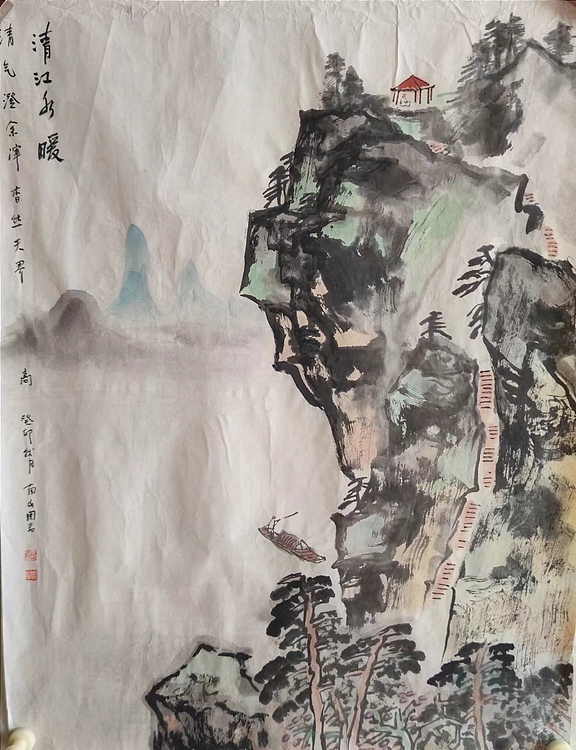 清江水暖
清气澄余滓 杳然天界高 癸卯秋月